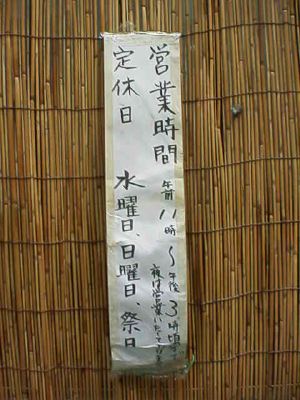 営業時間 午前11時〜午後3時頃まで
夜は営業いたしておりません
定休日 水曜日、日曜日、祭日